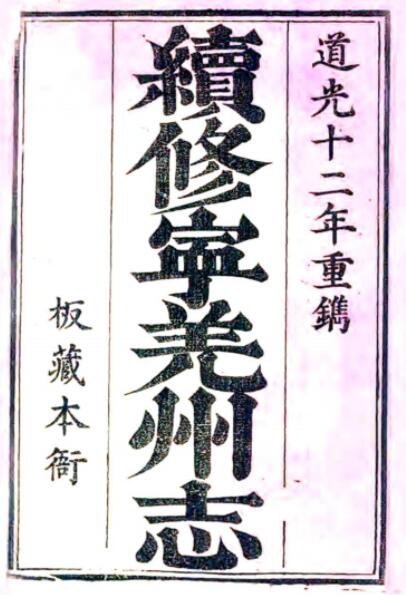 道光十二年重鐫
續修寜羌州志
板藏本衙